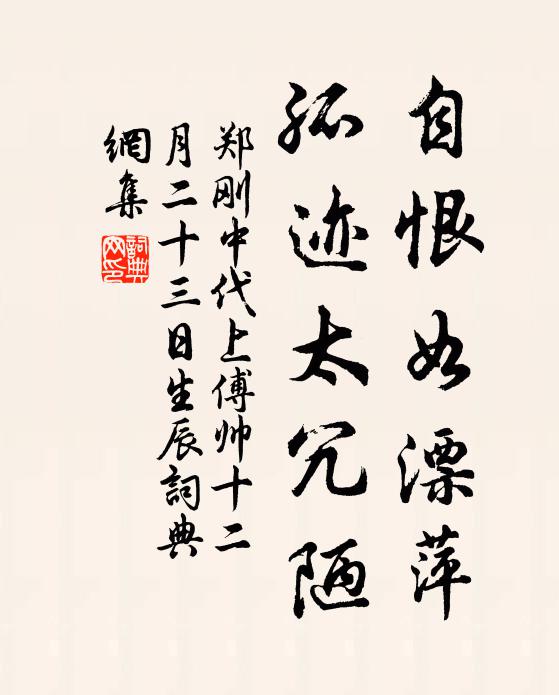 自恨如漂萍
孤迹太冗陋
郑刚中代上傅帅十二
月二十三日生辰詞典
網集
詞典
网印